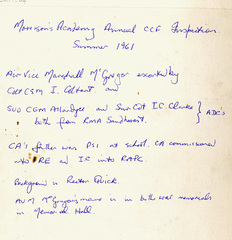 Morrison's Academy Annual CCF Inspection
Summer 1961
Air Vice Marshall McGregor escorted by
Cdt CSM I. and
SUO CGM Allardyce and Snr Cdt I.C. Clarke } ADC's
both from RMA Sandhurst.
CA's father was PSI at school. CA commissioned
into RE and IC into RAPC.
Background is Rector Quick.
AVM McGregor's name is on both war memorials
in Memorial Hall.